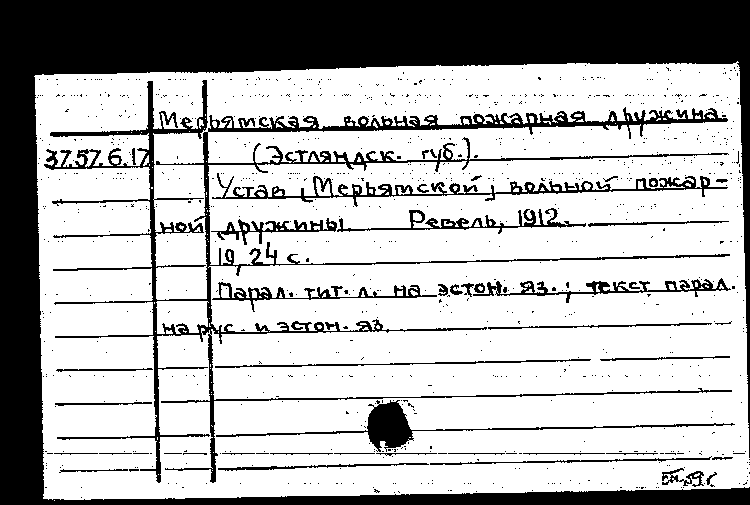 Мерьямская вольная пожарная дружина.
37.57.6.17. (Эстляндск. губ.).
Устав [Мерьямской] вольной пожар-
ной дружины. Ревель, 1912.
19, 24 с.
Парал. тит. л. на эстон. яз.; текст парал.
на рус. и эстон. яз.